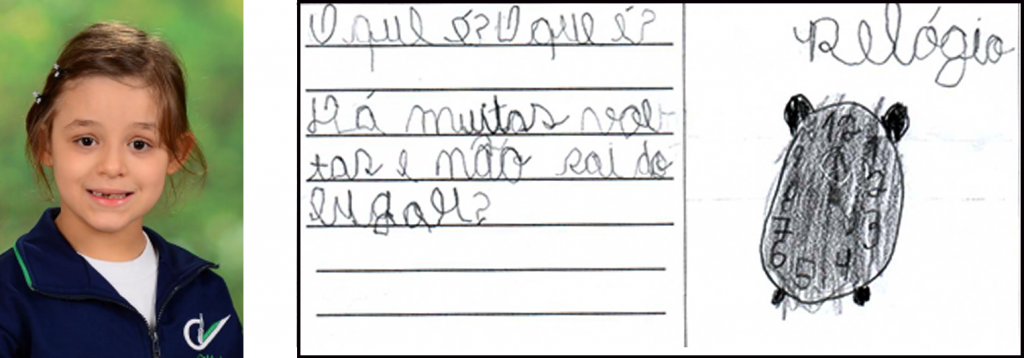 O que é? O que é?
Dá muitas vol-
tas e não sai do
lugar?
Relógio
12
1
2
3
4
5
6
7